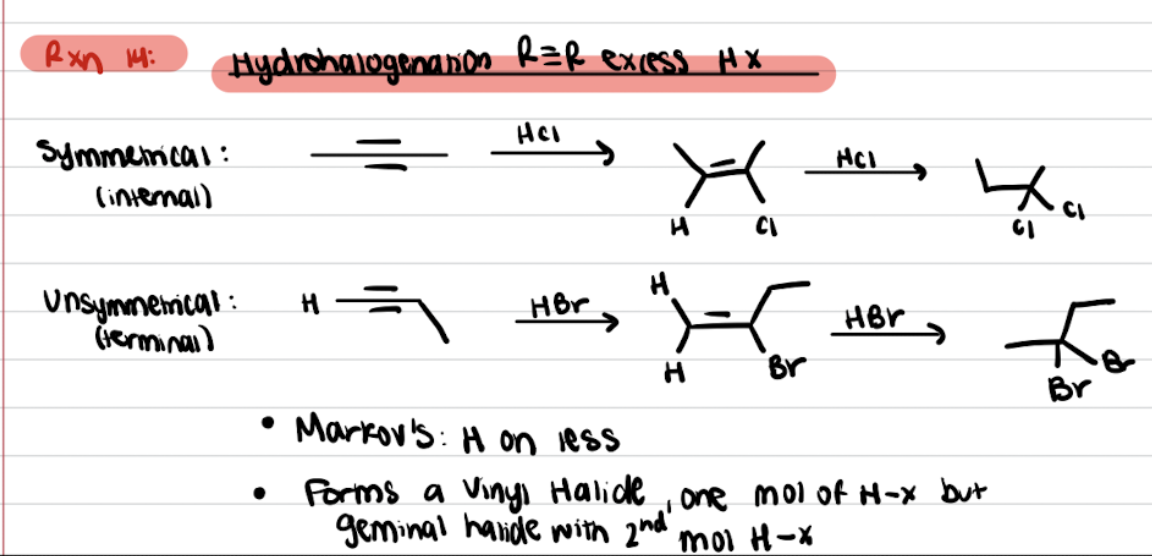 Rxn 14: Hydrohalogenation R≡R excess HX
Symmetrical: HCl HCl
(internal)
H Cl Cl Cl
Unsymmetrical: H HBr H HBr
(terminal)
H Br Br Br
• Markov's: H on less
• Forms a Vinyl Halide, one mol of H-X but
geminal halide with 2nd mol H-X